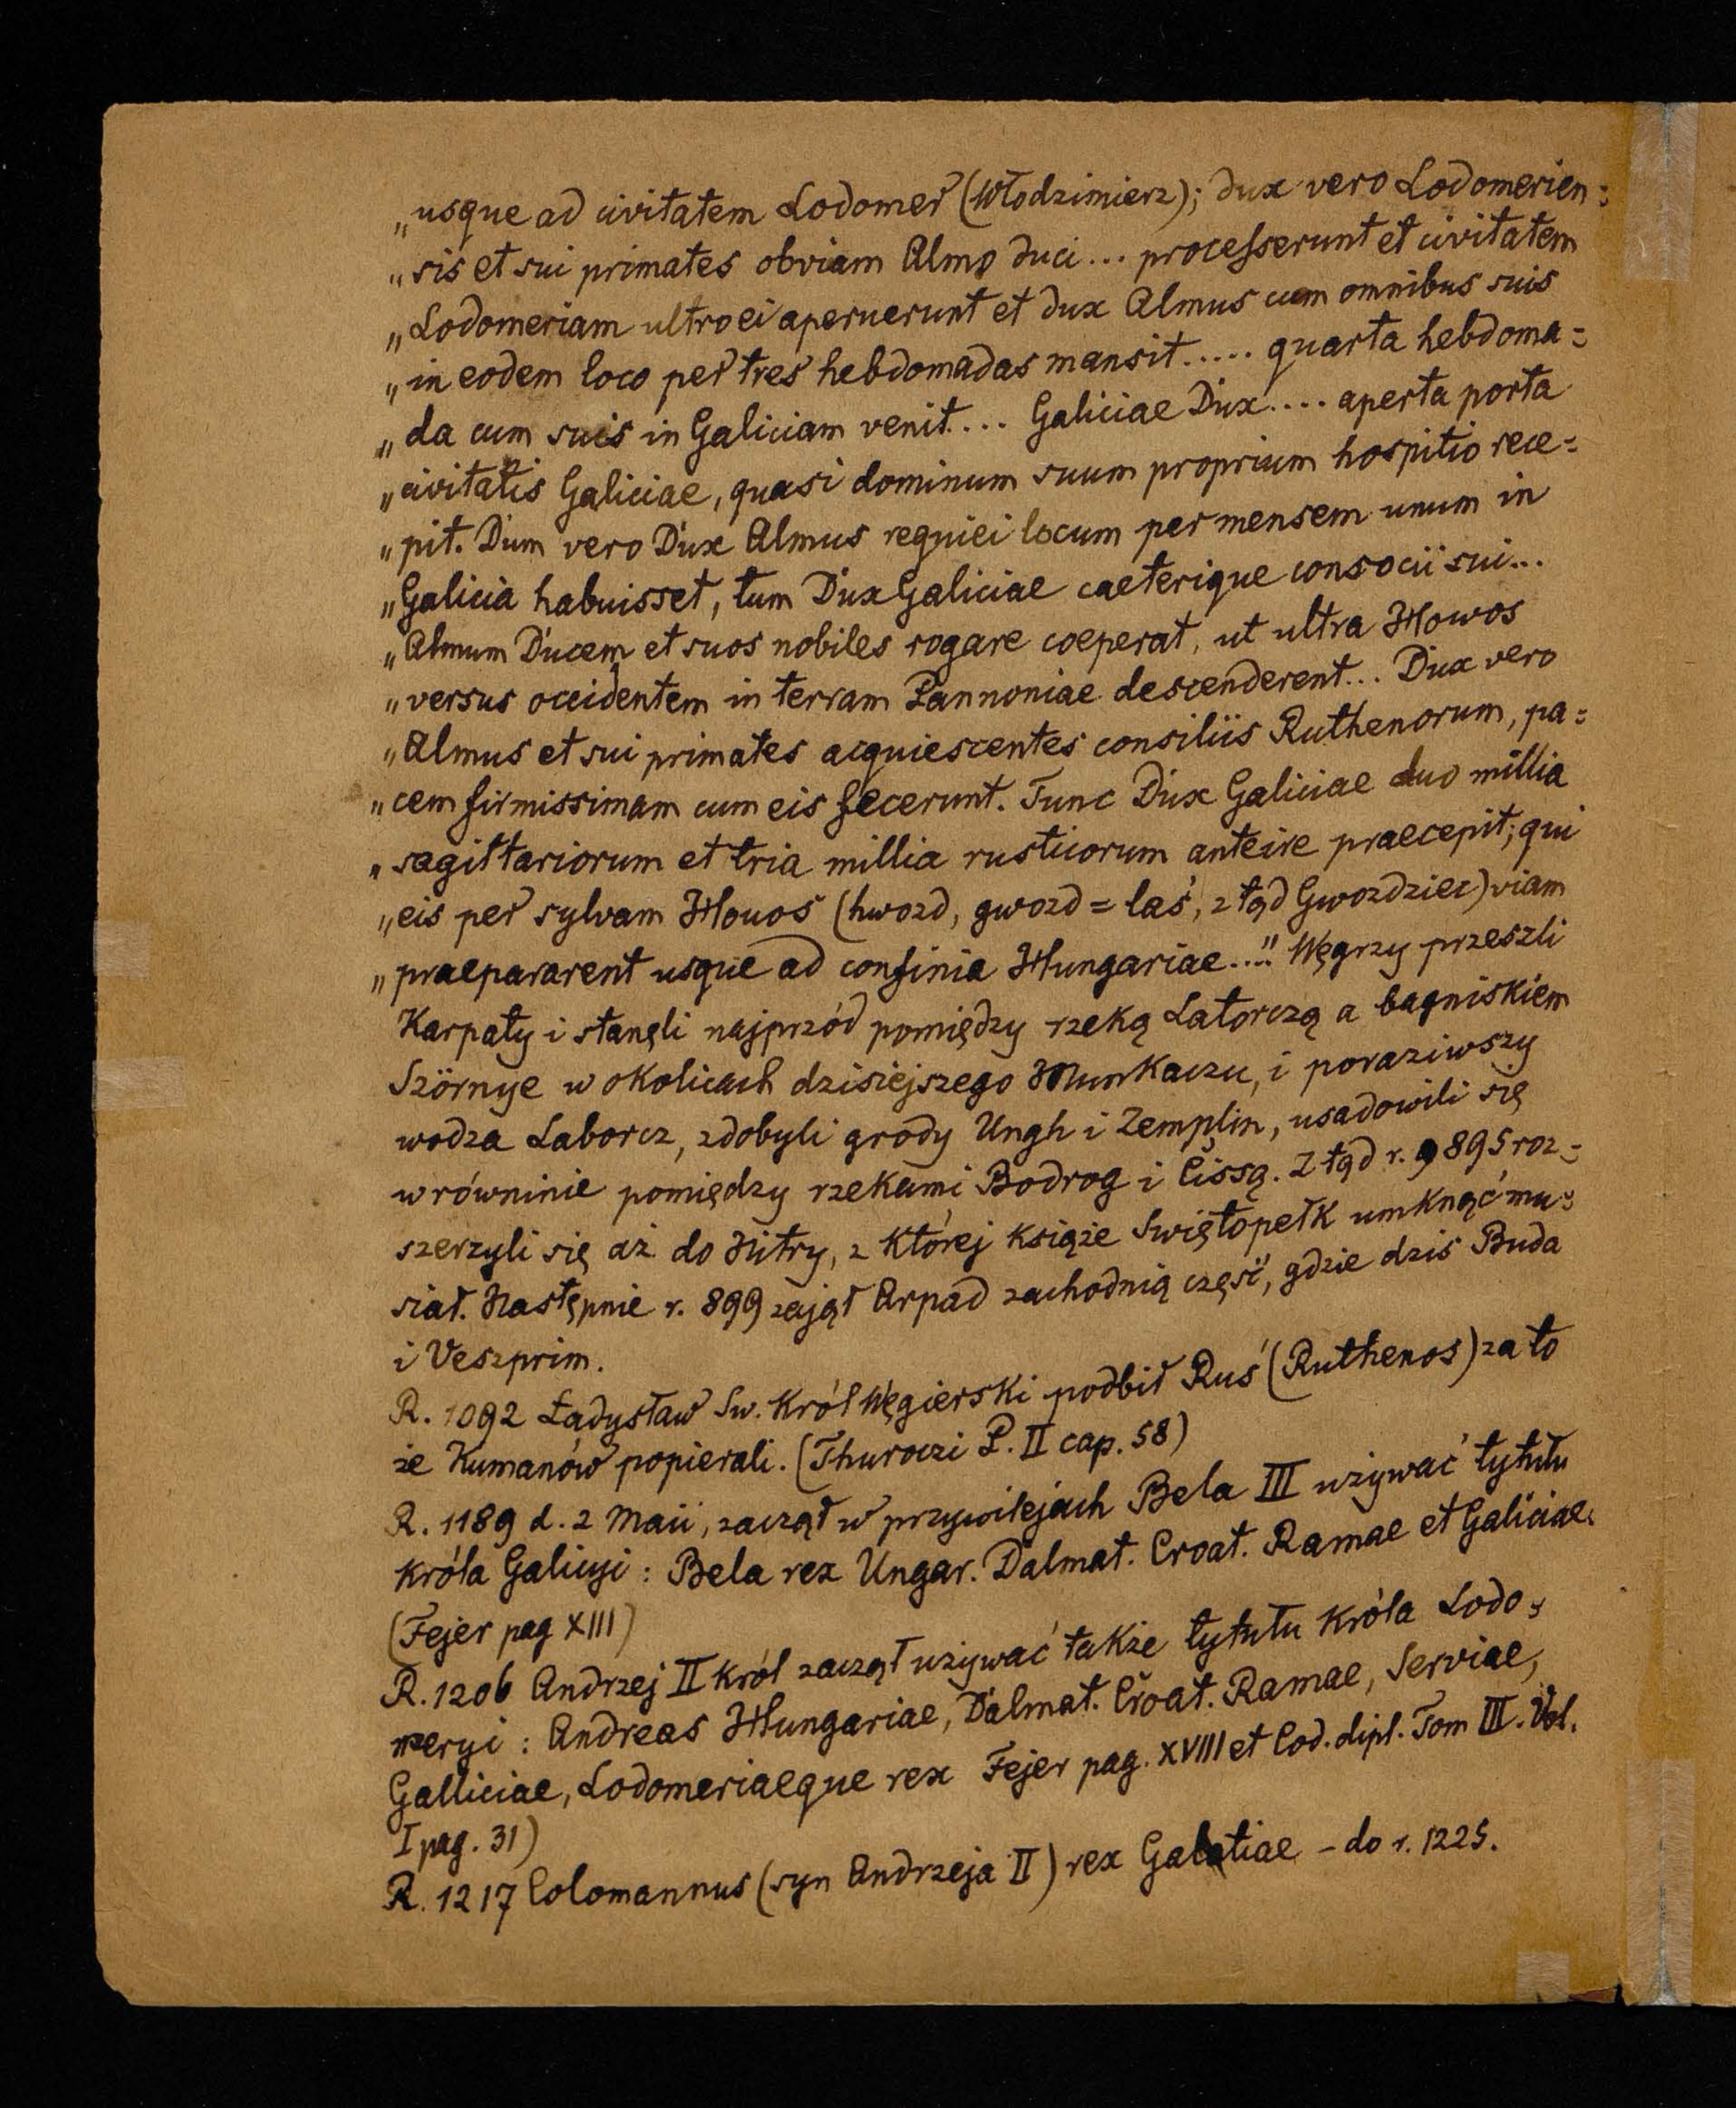 „usque ad civitatem Lodomer (Włodzimierz); dux vero Lodomerien=
„sis et sui primates obviam Almo duci... processerunt et civitatem
„Lodomeriam ultro ei aperuerunt et dux Almus cum omnibus suis
„in eodem loco per tres hebdomadas mansit..... quarta hebdoma=
„da cum suis in Galiciam venit.... Galiciae Dux.... aperta porta
„civitatis Galiciae, quasi dominum suum proprium hospitio rece=
„pit. Dum vero Dux Almus requiei locum per mensem unum in
„Galicia habuisset, tum Dux Galiciae caeterique consocii sui...
„Almum Ducem et suos nobiles rogare coeperat, ut ultra Howos
„versus occidentem in terram Pannoniae descenderent... Dux vero
„Almus et sui primates acquiescentes consiliis Ruthenorum, pa=
„cem firmissimam cum eis fecerunt. Tunc Dux Galiciae duo millia
„sagittariorum et tria millia rusticorum anteire praecepit; qui
„eis per sylvam Houos (hwozd, gwozd = las, ztąd Gwozdziec) viam
„praepararent usque ad confinia Hungariae...." Węgrzy przeszli
Karpaty i stanęli najprzód pomiędzy rzeką Latorczą a bagniskiem
Szörnye w okolicach dzisiejszego Munkaczu, i poraziwszy
wodza Laborcz, zdobyli grody Ungh i Zemplin, usadowili się
w równinie pomiędzy rzekami Bodrog i Cissą. Ztąd r. 895 roz=
szerzyli się aż do Nitry, z której książe Swiętopełk umknąć mu=
siał. Następnie r. 899 zajął Arpad zachodnią część, gdzie dziś Buda
i Veszprim.
R. 1092 Ładysław Sw. król Węgierski podbił Ruś (Ruthenos) za to
że Kumanów popierali. (Thuroczi P. II cap. 58)
R. 1189 d. 2 Maii, zaczął w przywilejach Bela III używać tytułu
króla Galicyi: Bela rex Ungar. Dalmat. Croat. Ramae et Galiciae.
(Fejer pag XIII)
R. 1206 Andrzej II król zaczął używać także tytułu króla Lodo=
meryi: Andreas Hungariae, Dalmat. Croat. Ramae, Serviae,
Galliciae, Lodomeriaeque rex Fejer pag. XVIII et Cod. dipl. Tom III. Vol.
I pag. 31)
R. 1217 Colomannus (syn Andrzeja II) rex Galatiae - do r. 1225.